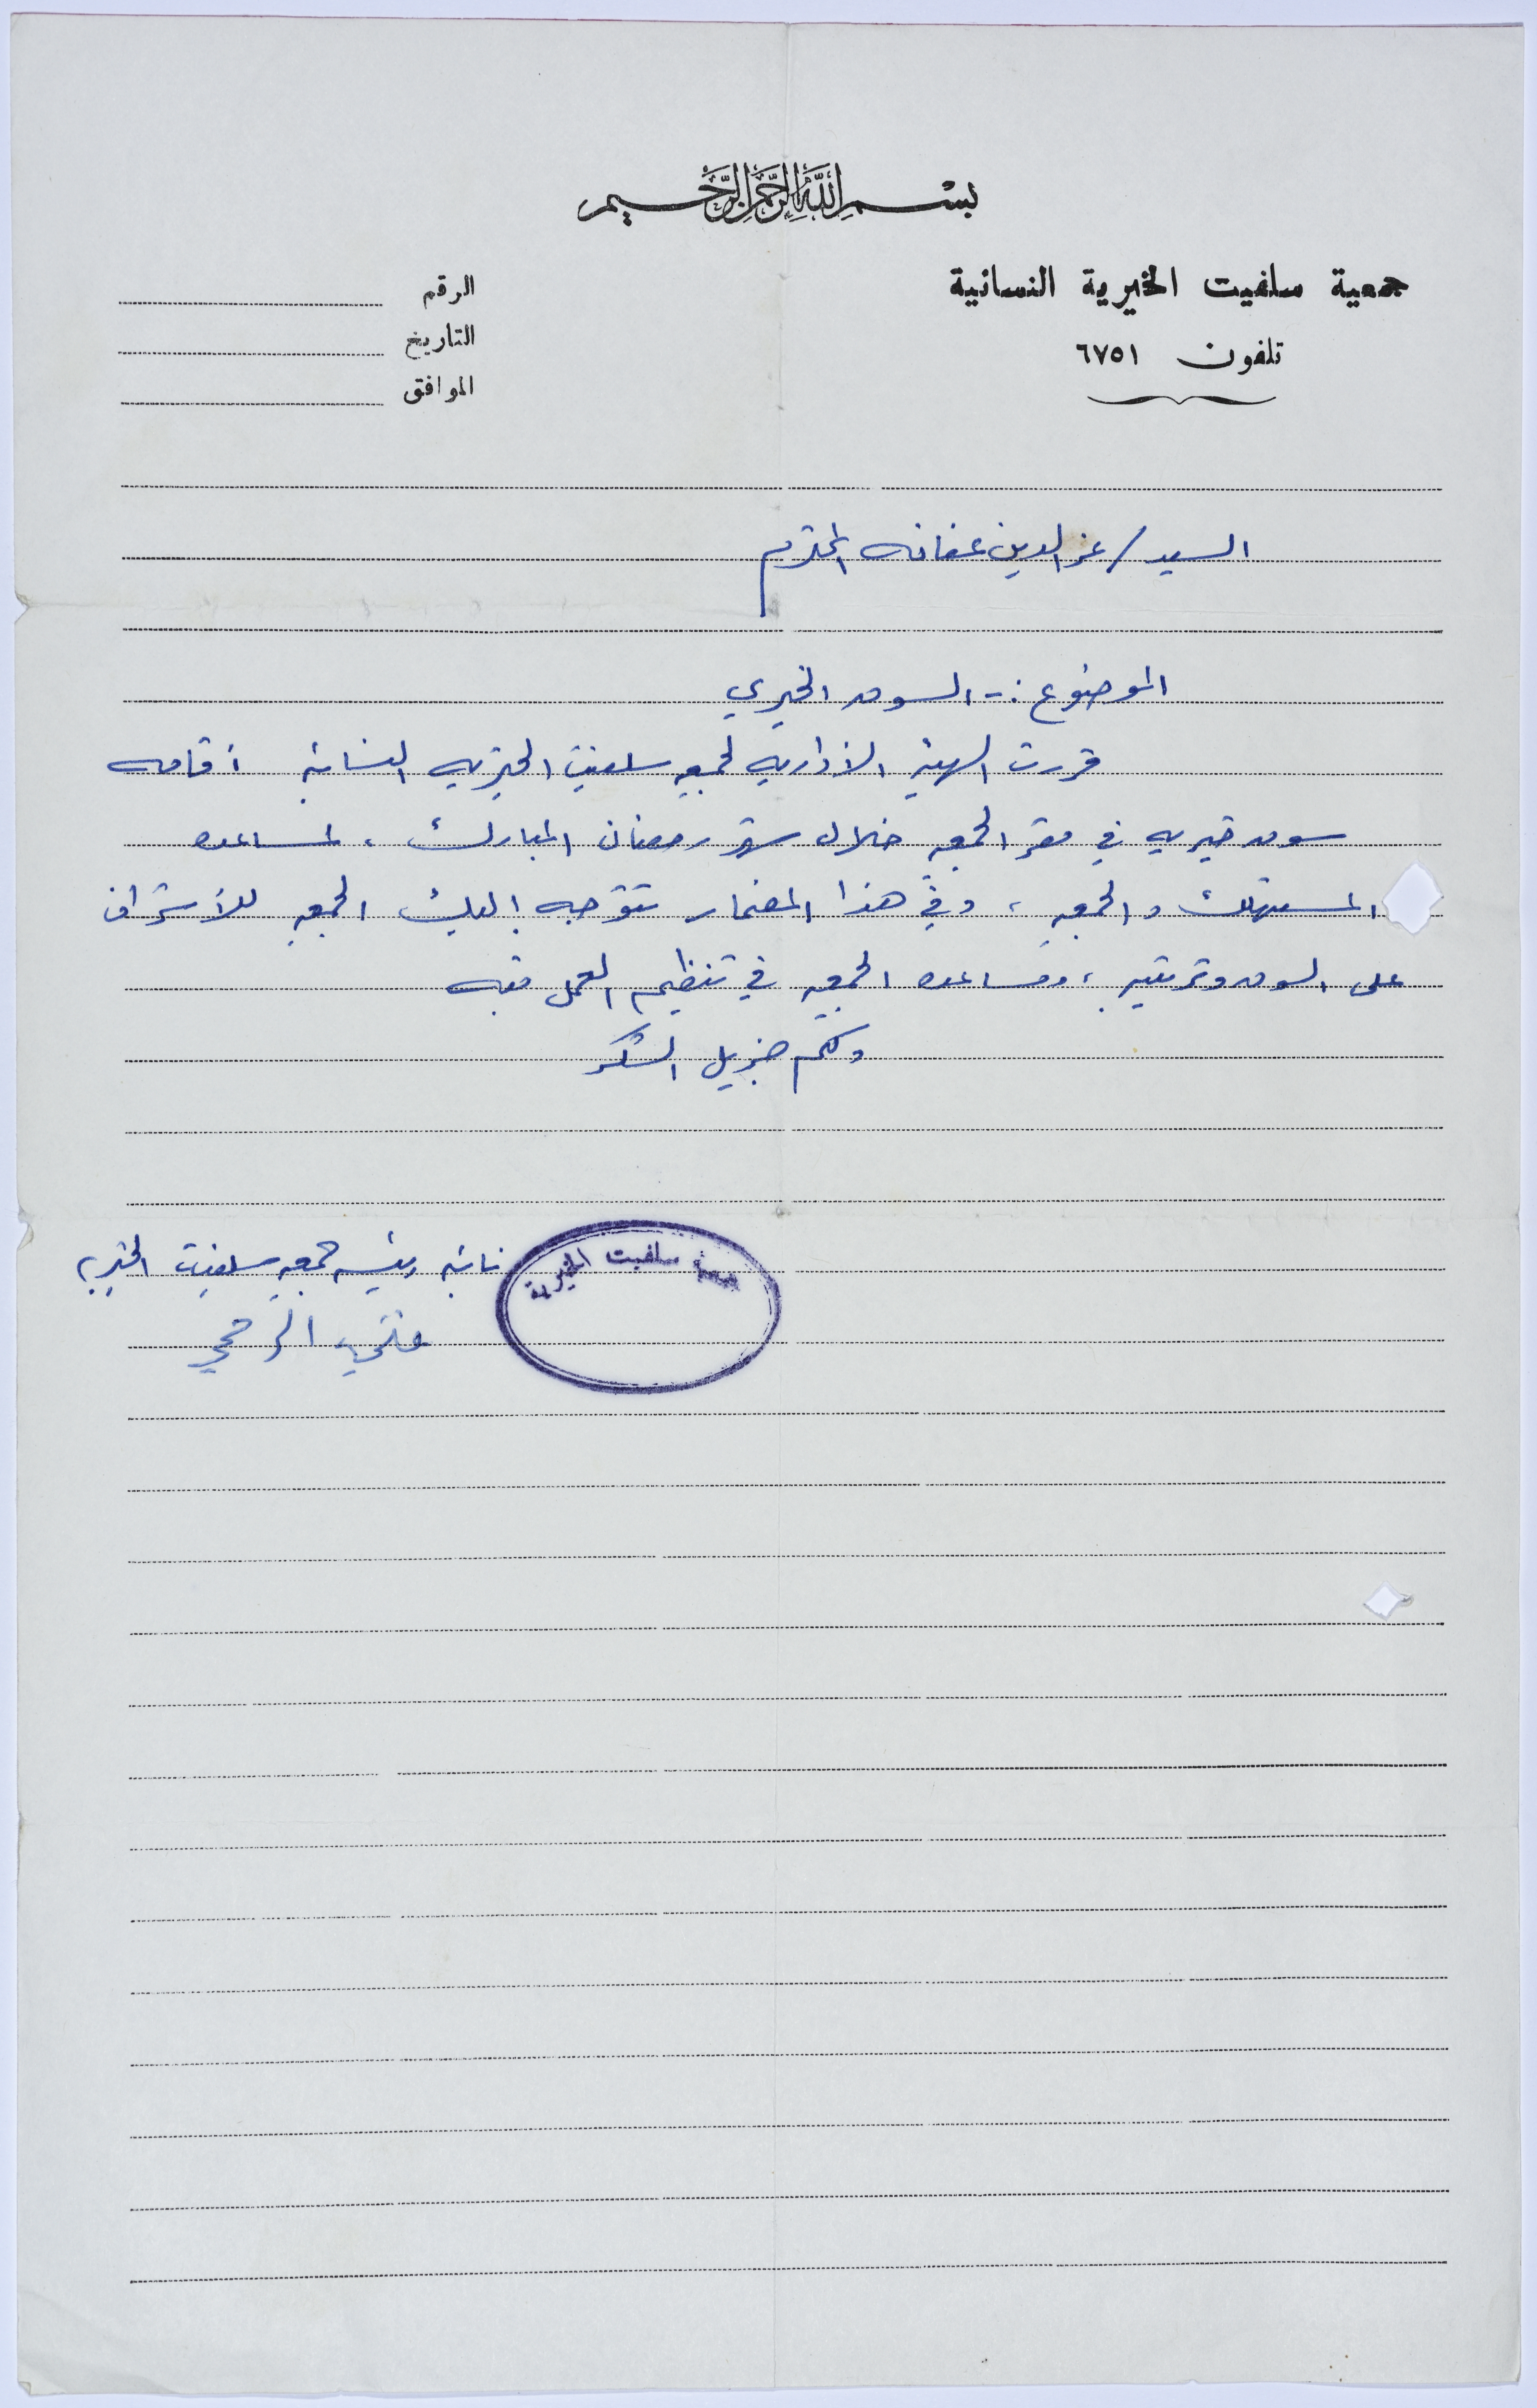 بسم الله الرحمن الرحيم
جمعية سلفيت الخيرية النسائية
تلفون ٦٧٥١
الرقم
التاريخ
الموافق
السيد / عز الدين عفانه المحترم
الموضوع :- السوق الخيري
قررت الهيئة الأداريه لجمعيه سلفيت الخيريه النسائية أقامه
سوق خيريه في مقر الجمعيه خلال شهر رمضان المبارك ، لمساعده
المستهلك والجمعيه ، وفي هذا المضمار تتوجه إليك الجمعيه للأشراف
على السوق وترتيبه ، ومساعده الجمعيه في تنظيم العمل فيه
ولكم جزيل الشكر
نائبة رئيسه جمعيه سلفيت الخيريه
فتحيه الرمحي
جمعية سلفيت الخيرية